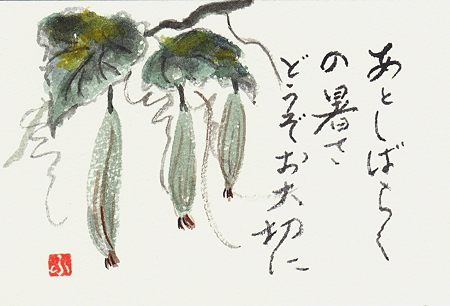 あとしばらく
の暑さ
どうぞお大切に